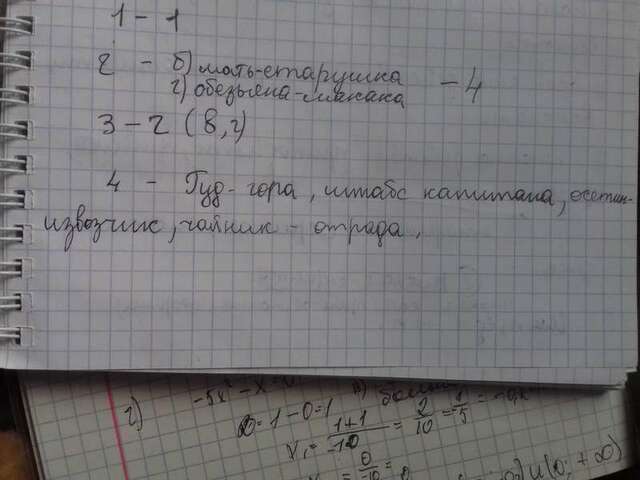 1 - 1
2 - б) мать-старушка
г) обезьяна-макака
- 4
3 - 2 (в, г)
4 - Гуд-гора, штабс капитана, осетин-
извозчик, чайник - отрада,
г) -5x² - x
D = 1 - 0 = 1
x₁ = 1+1/-10 = 2/10 = 1/5 =
0/-10 =
; + ∞)